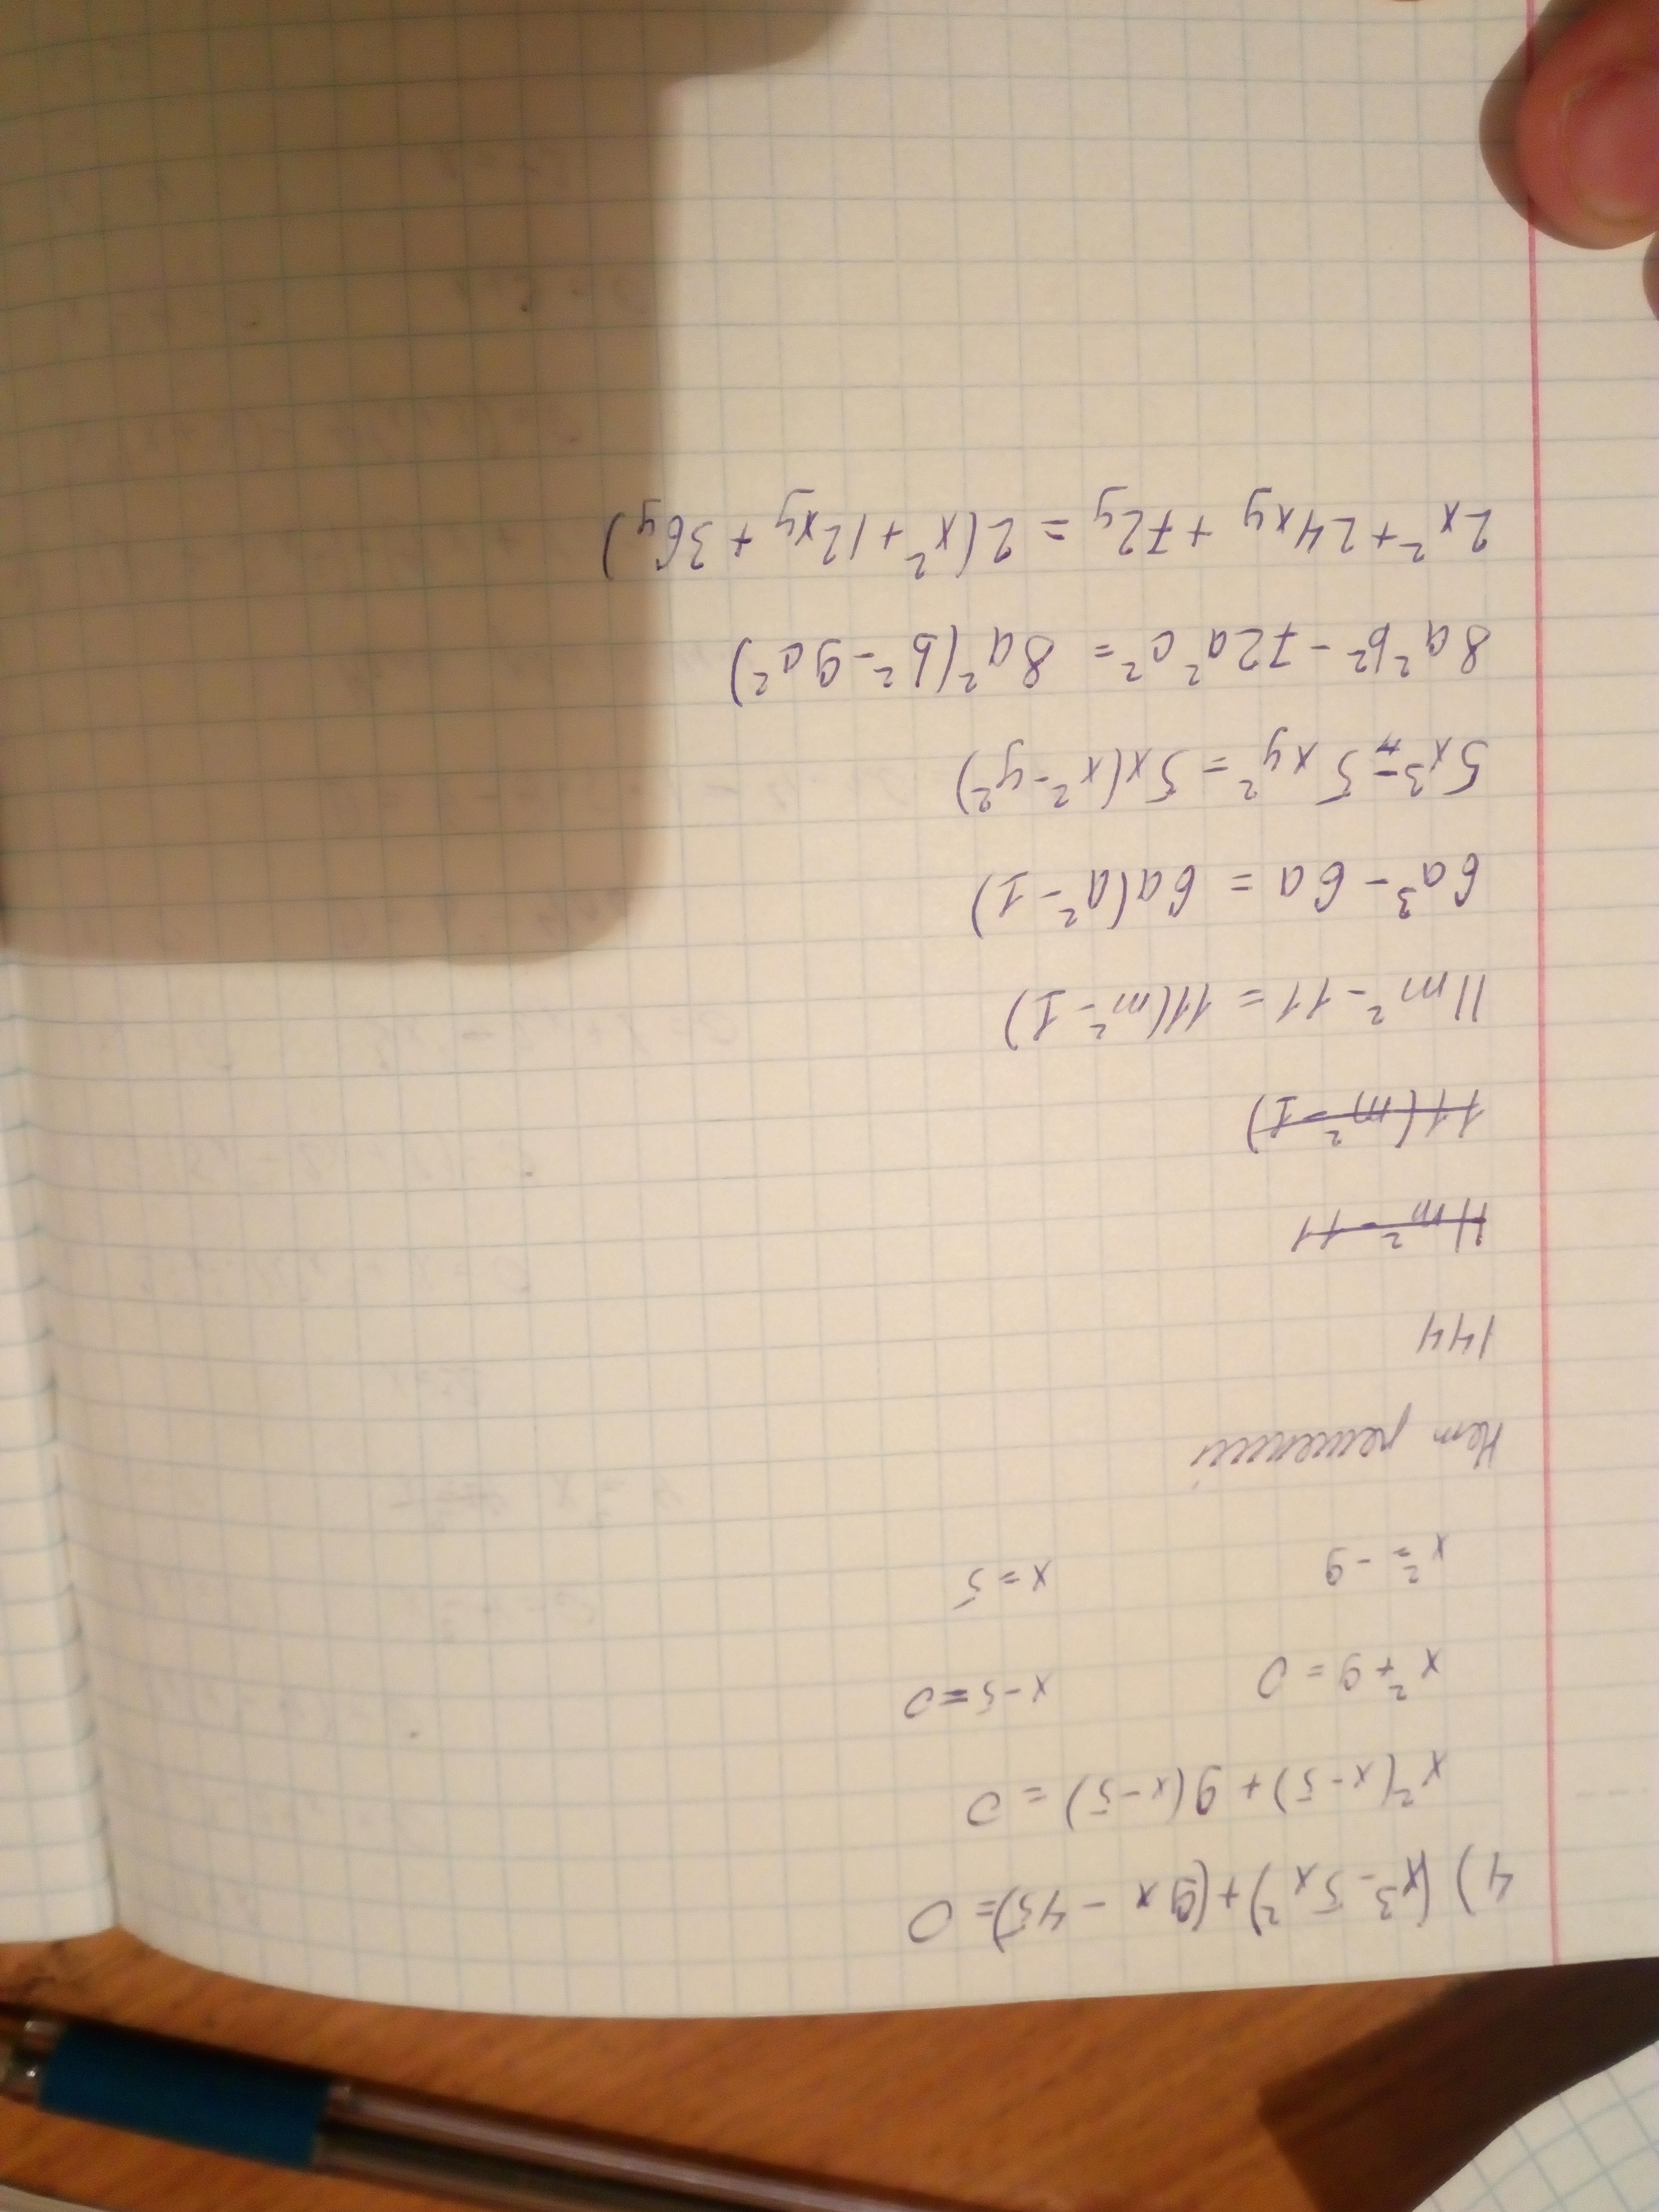 4) (x³ - 5x²) + (9x - 45) = 0
x²(x - 5) + 9(x - 5) = 0
x² + 9 = 0 x - 5 = 0
x² = -9 x = 5
Нет решений
144
11m² - 11
11(m² - 1)
11m² - 11 = 11(m² - 1)
6a³ - 6a = 6a(a² - 1)
5x³ - 5xy² = 5x(x² - y²)
8a²b² - 72a²c² = 8a²(b² - 9c²)
2x² + 24xy + 72y = 2(x² + 12xy + 36y)